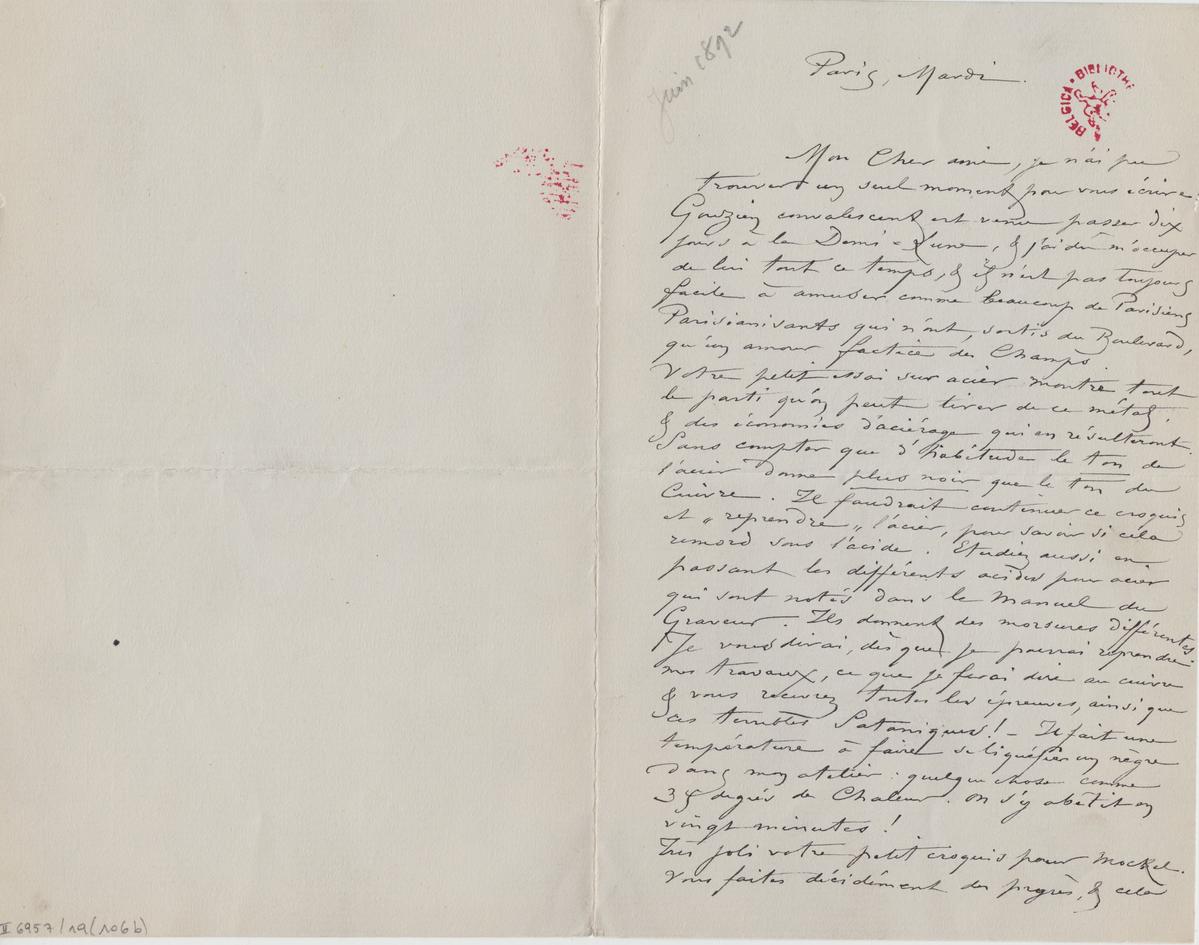 Juin 1892
Paris, Mardi.
BIBLIOTHE
BELGICA
Mon Cher ami, je n'ai pu
trouver un seul moment pour vous écrire.
Gouzien convalescent est venu passer dix
jours à la Demi-Lune, & j'ai dû m'occuper
de lui tout ce temps, & il n'est pas toujours
facile à amuser comme beaucoup de Parisiens
Parisianisants qui n'ont, sortis du Boulevard,
qu'un amour factice des Champs.
Votre petit essai sur acier montre tout
le parti qu'on peut tirer de ce métal,
& des économies d'aciérage qui en résulteront.
Sans compter que d'habitude le ton de
l'acier donne plus noir que le ton du
Cuivre. Il faudrait continuer ce croquis
et "reprendre" l'acier, pour savoir si cela
remord sous l'acide. Etudiez aussi en
passant les différents acides pour acier
qui sont notés dans le Manuel du
Graveur. Ils donnent des morsures différentes
Je vous dirai, dès que je pourrai reprendre
mes travaux, ce que je ferai dire au cuivre
& vous recevrez toutes les épreuves, ainsi que
ces terribles Sataniques! – Il fait une
température à faire se liquéfier un nègre
dans mon atelier : quelque chose comme
35 degrés de Chaleur. On s'y abêtit en
vingt minutes !
Très joli votre petit croquis pour Mockel.
Vous faites décidément des progrès, & cela
II 6957/19(106b)